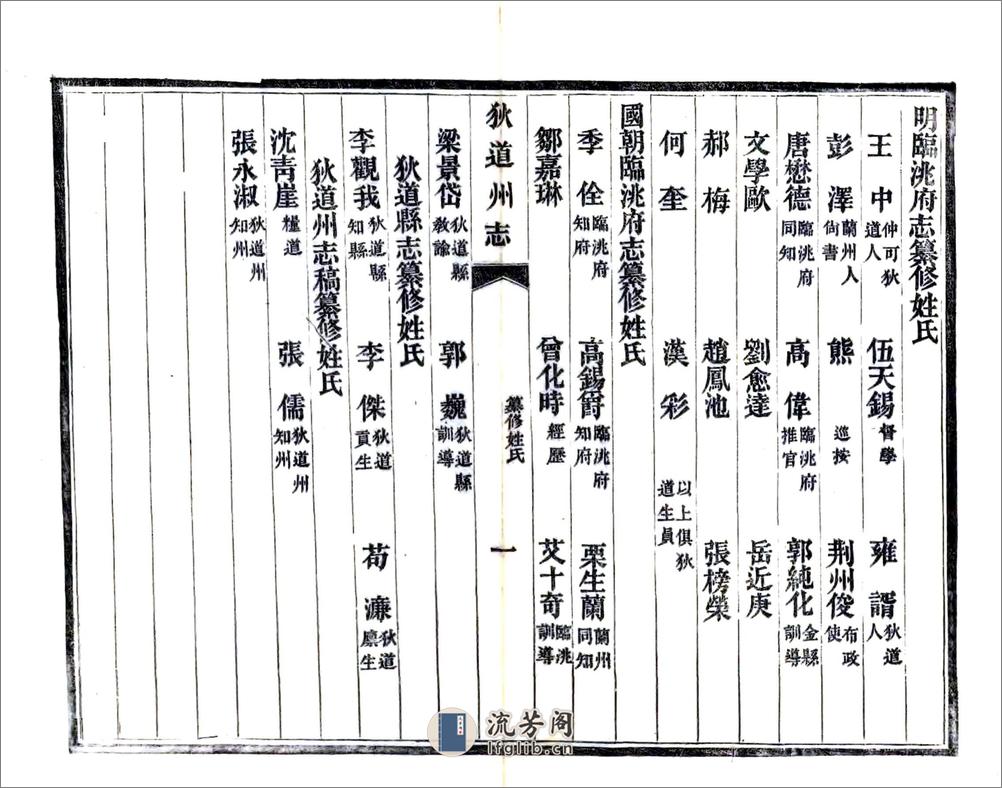 明臨洮府志纂修姓氏
王中 仲可狄道人 伍天錫 督學 雍諝 狄道人
彭澤 蘭州人尚書 熊 巡按 荆州俊 布政使
唐懋德 臨洮府同知 高偉 臨洮府推官 郭純化 金縣訓導
文學歐 劉愈達 岳近庚
郝梅 趙鳳池 張榜榮
何奎 漢彩 以上俱狄道生員
國朝臨洮府志纂修姓氏
季佺 臨洮府知府 高錫爵 臨洮府知府 栗生蘭 蘭州同知
鄒嘉琳 曾化時 經歷 艾十奇 臨洮訓導
狄道州志 纂修姓氏 一
梁景岱 狄道縣教諭 郭巍 狄道縣訓導
狄道縣志纂修姓氏
李觀我 狄道縣知縣 李傑 狄道貢生 苟濂 狄道廩生
狄道州志稿纂修姓氏
沈青崖 糧道 張儒 狄道州知州
張永淑 狄道州知州
流芳阁
lfglib.cn